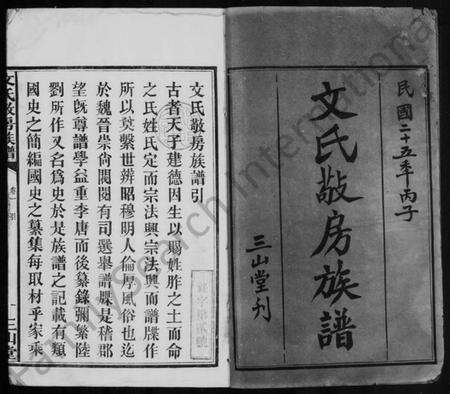 民國二十五年丙子
文氏敬房族譜
三山堂刋
文氏敬房族譜引
古者天子建德因生以賜姓胙之土而命
之氏姓氏定而宗法興宗法興而譜牒作
所以奠繫世辨昭穆明人倫厚風俗也迄
於魏晉崇尚閥閱有司選舉譜牒是稽郡
望旣尊譜學益重李唐而後纂錄彌繁陸
劉所作又名爲史於是族譜之記載有類
國史之簡編國史之纂集每取材乎家乘
文氏敬房族譜
卷一
三山堂
FamilySearch International